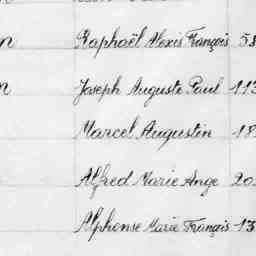 n Raphaël Alexis François 58
n Joseph Auguste Paul 113
Marcel Augustin 18
Alfred Marie Ange 20
Alphonse Marie François 13